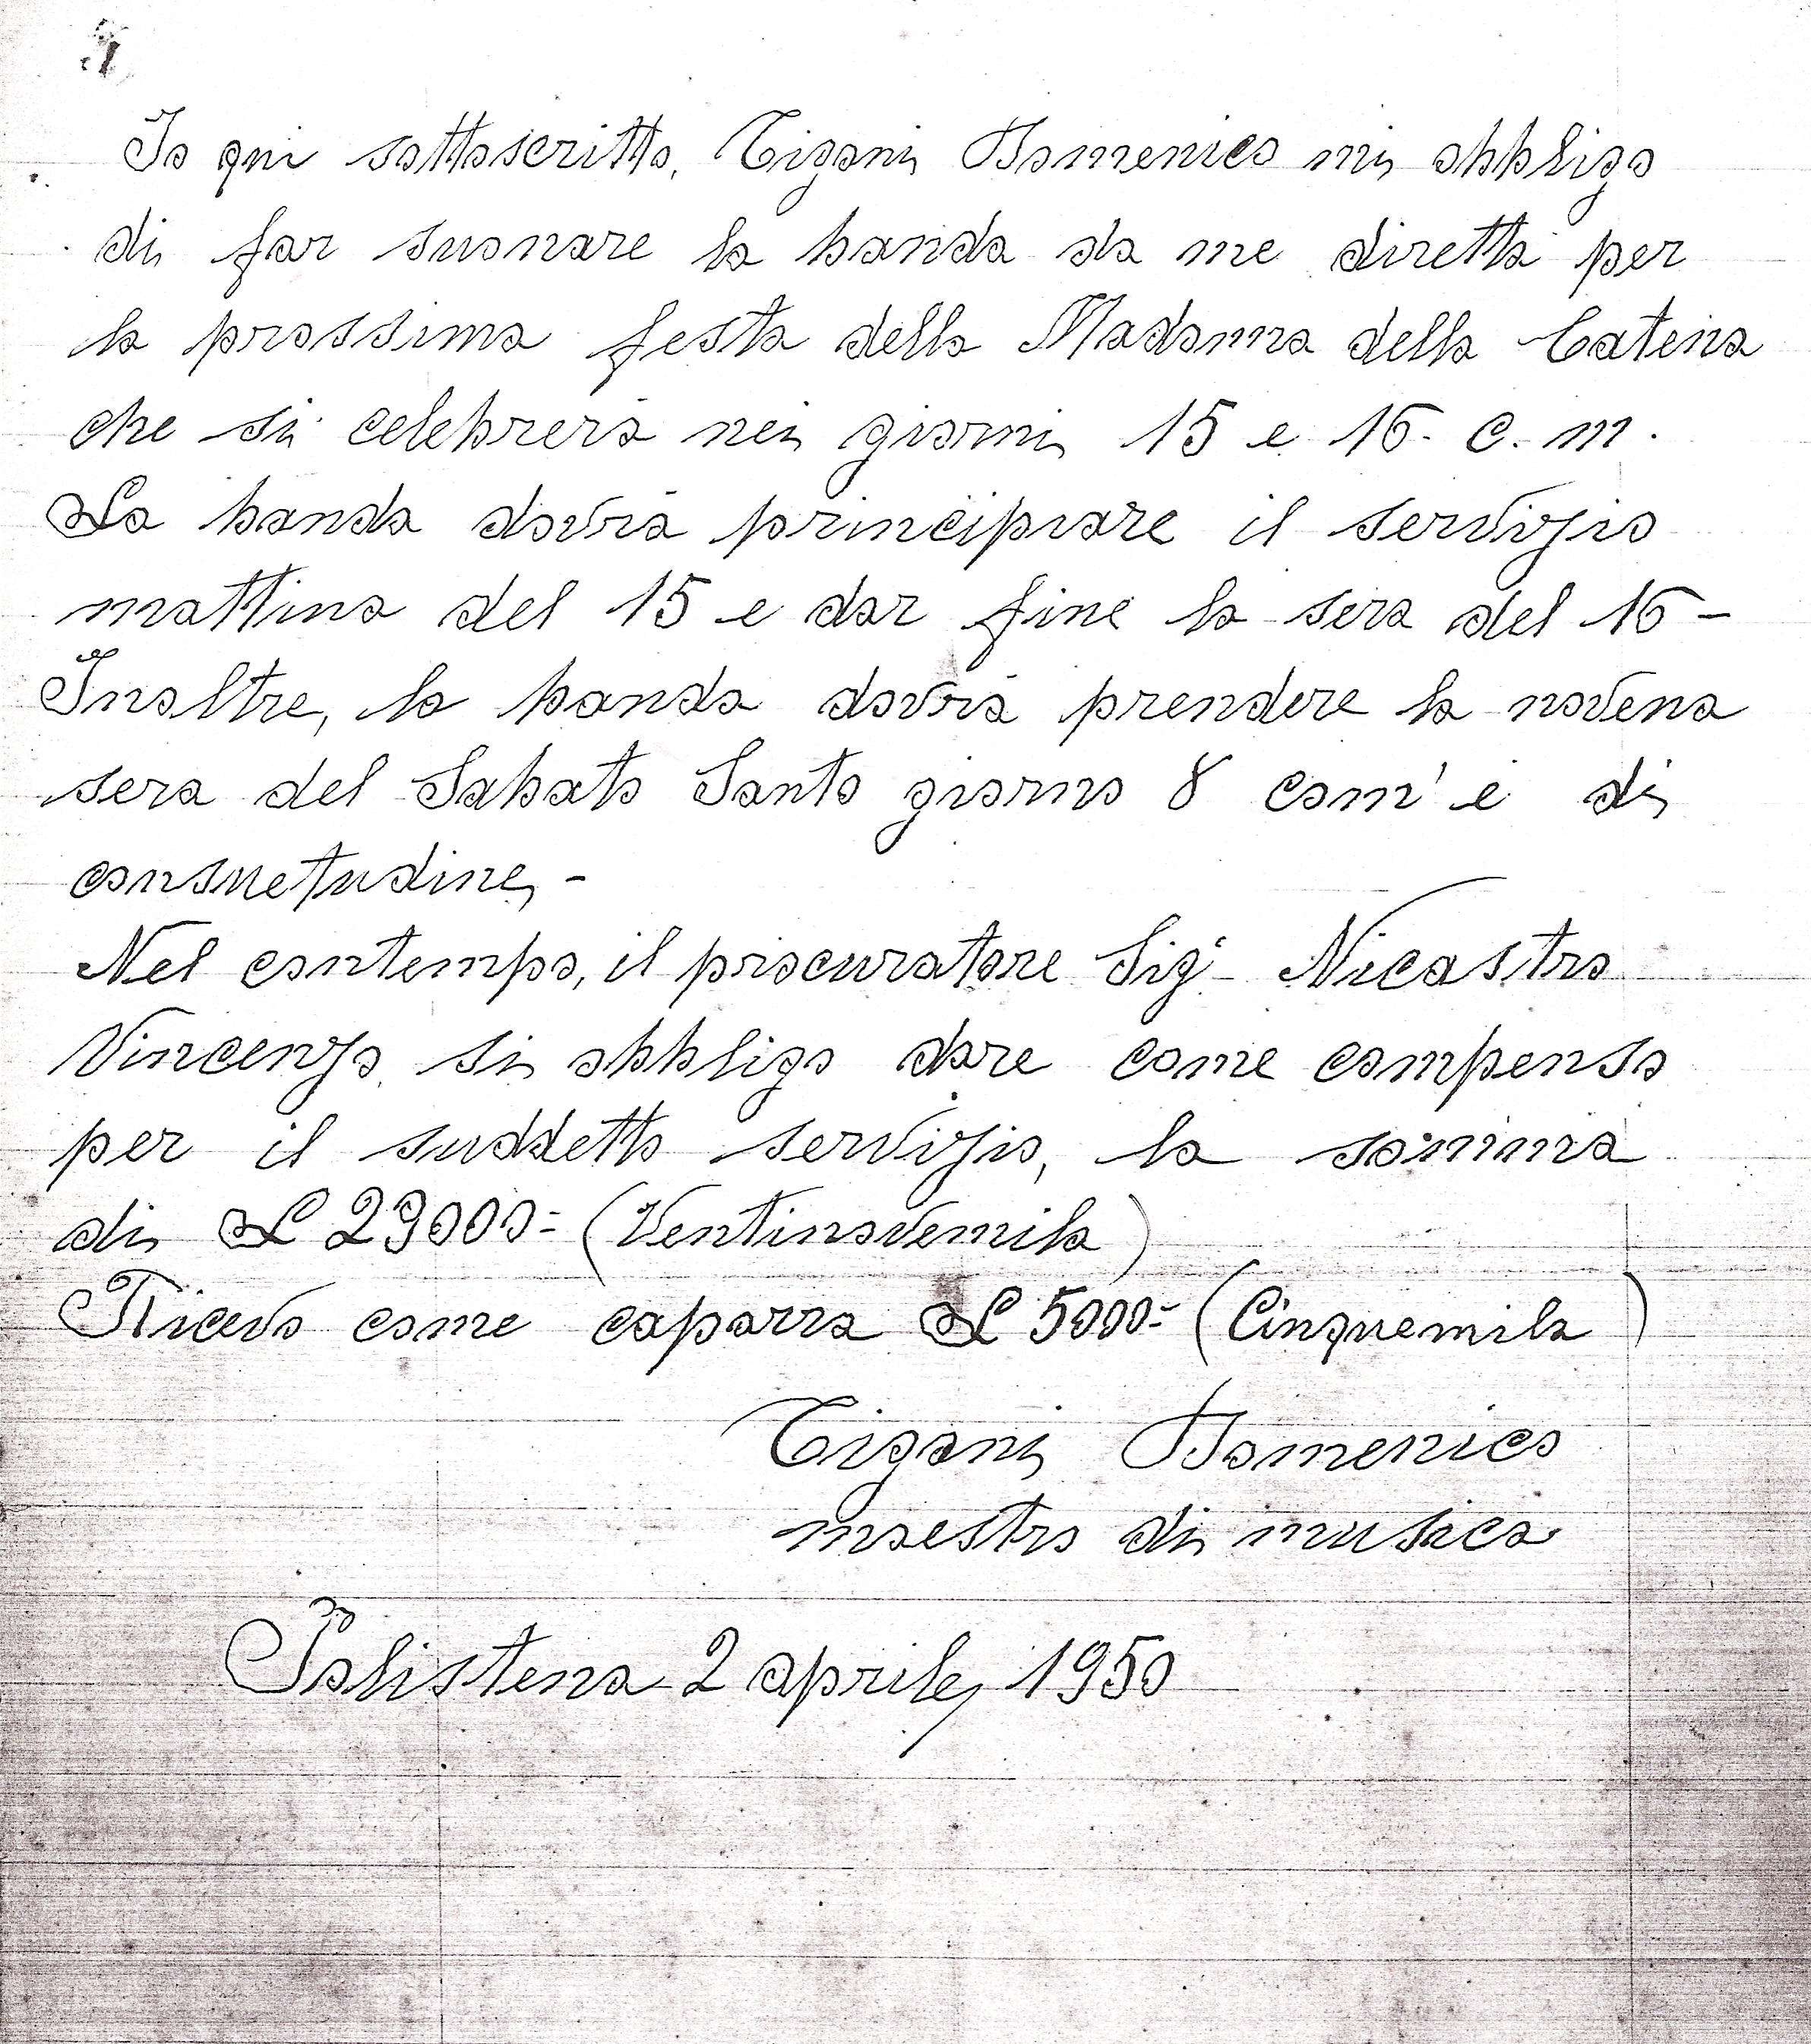 Io qui sottoscritto, Tigani Domenico mi obbligo
di far suonare la banda da me diretta per
la prossima festa della Madonna della Catena
che si celebrerà nei giorni 15 e 16. c. m.
La banda dovrà principiare il servizio
mattina del 15 e dar fine la sera del 16 -
Inoltre, la banda dovrà prendere la novena
sera del Sabato Santo giorno 8 com'è di
consuetudine, -
Nel contempo, il procuratore Sigr Nicastro
Vincenzo si obbliga dare come compenso
per il suddetto servizio, la somma
di L 29000= (Ventinovemila)
Ricevo come caparra L 5000= (Cinquemila)
Tigani Domenico
maestro di musica
Polistena 2 aprile, 1950